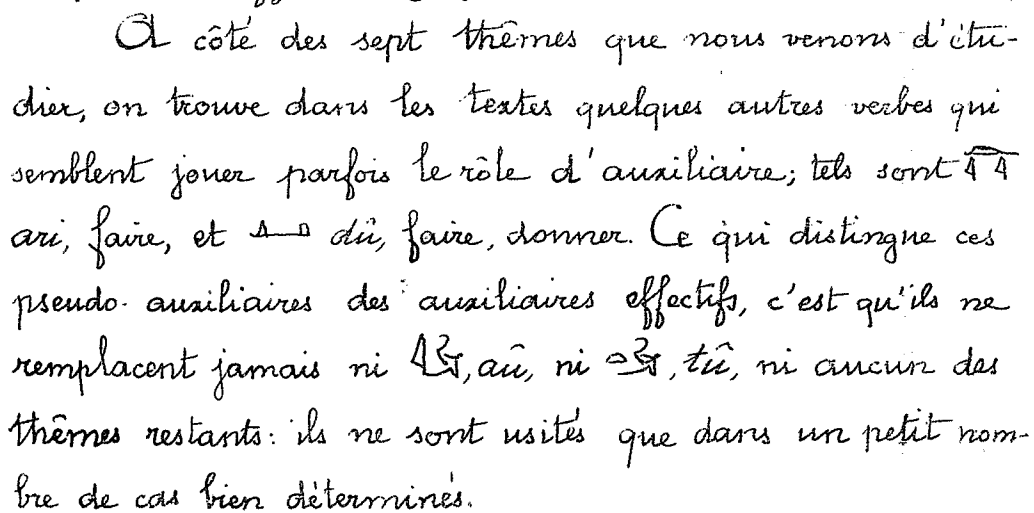 A côté des sept thêmes que nous venons d'étu-
dier, on trouve dans les textes quelques autres verbes qui
semblent jouer parfois le rôle d'auxiliaire; tels sont
ari, faire, et dû, faire, donner. Ce qui distingue ces
pseudo-auxiliaires des auxiliaires effectifs, c'est qu'ils ne
remplacent jamais ni , aû, ni , tû, ni aucun des
thêmes restants: ils ne sont usités que dans un petit nom-
bre de cas bien déterminés.